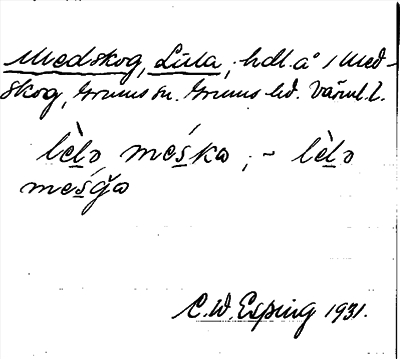 Medskog, Lilla, hdl. å / Med-
skog, Grums sn. Grums hd. Värml. l.
lὲlə méska ; - lὲlə
mešgə
C. W. Esping 1931.